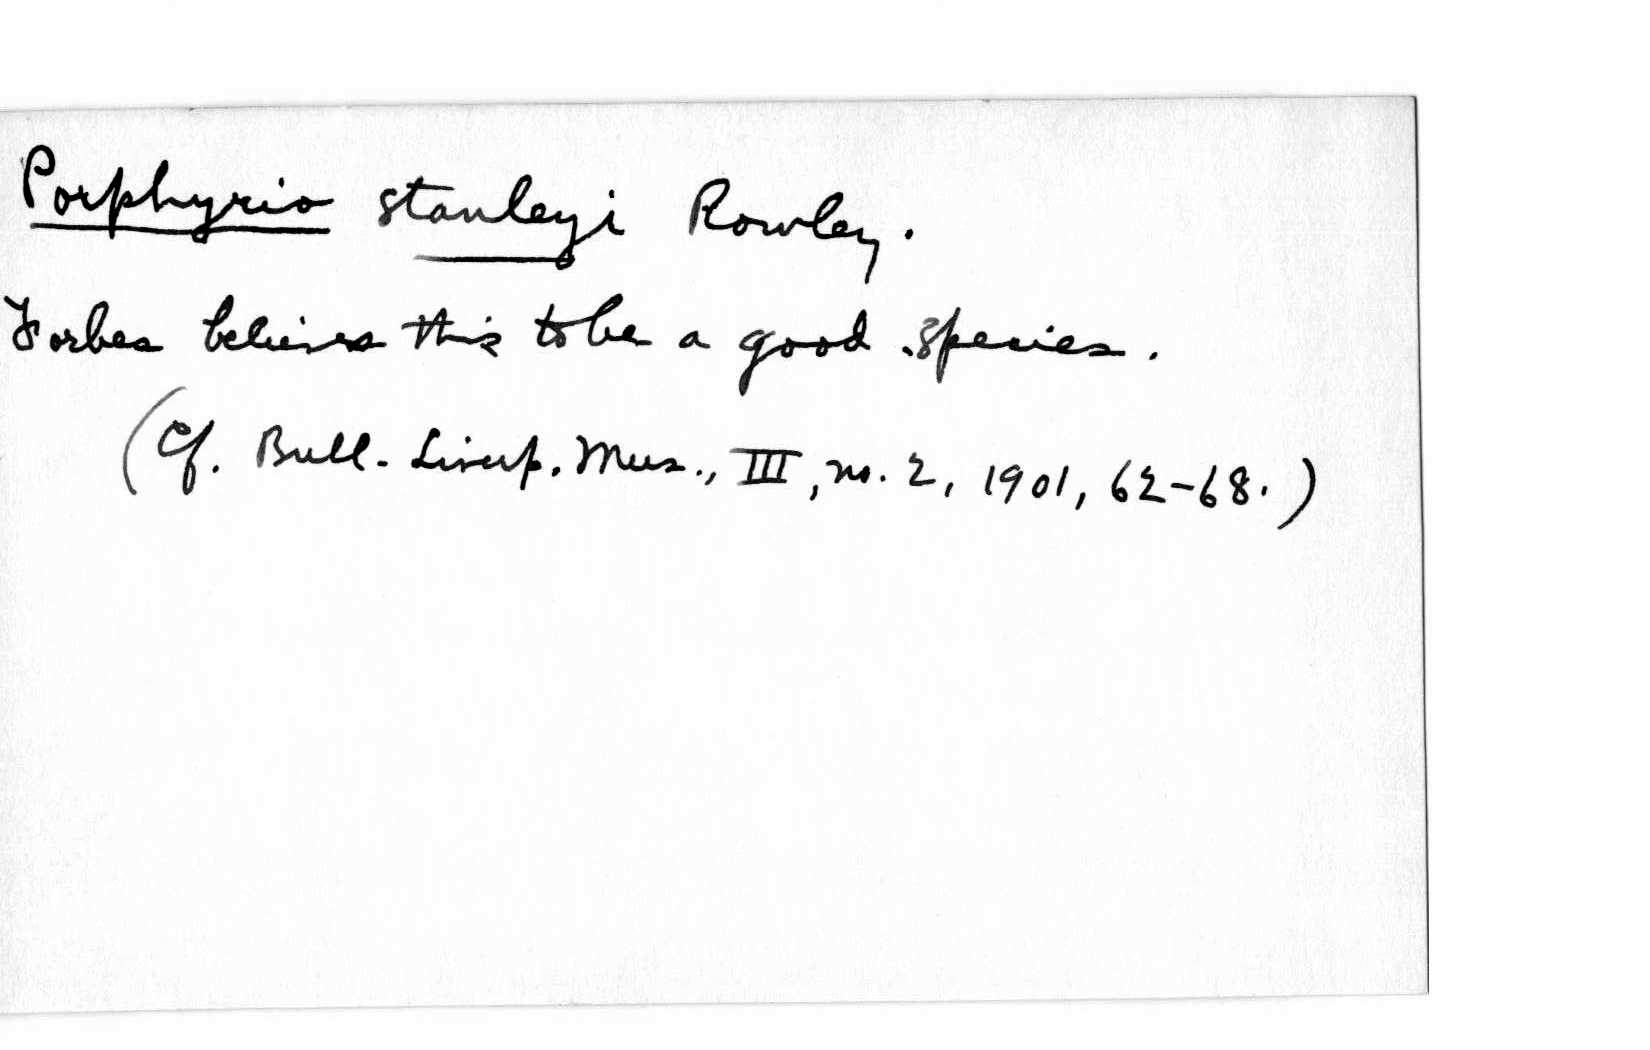 Porphyrio stanleyi Rowley.
Forbes believes this to be a good species.
(Cf. Bull. Liverp. Mus., III, no. 2, 1901, 62-68.)